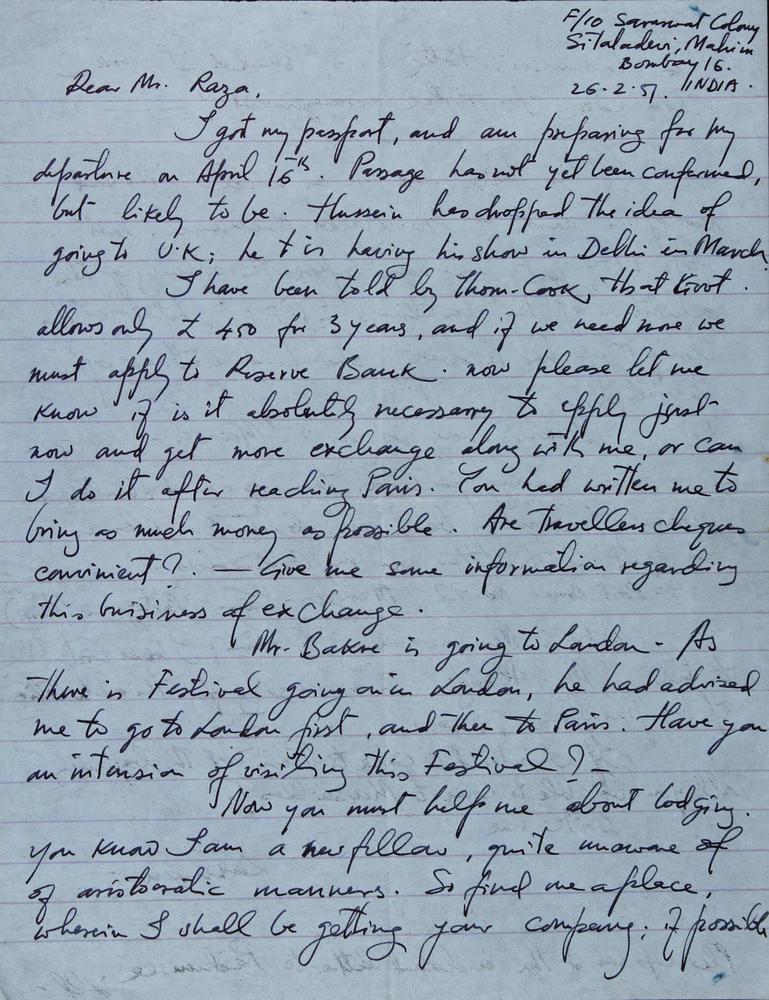 F/10 Saraswat Colony
Sitaladevi, Mahim
Bombay 16.
26.2.51. INDIA.
Dear Mr. Raza,
I got my passport, and am preparing for my
departure on April 16th. Passage has not yet been confirmed,
but likely to be. Hussein has dropped the idea of
going to U.K; he is having his show in Delhi in March.
I have been told by Thom-Cook, that Govt.
allows only £ 450 for 3 years, and if we need more we
must apply to Reserve Bank. now please let me
know if is it absolutely necessarry to apply just
now and get more exchange along with me, or can
I do it after reaching Paris. You had written me to
bring as much money as possible. Are Travellers cheques
convinient?. — Give me some information regarding
this buisiness of exchange.
Mr. Bakre is going to London - As
There is Festival going on in London, he had advised
me to go to London first, and then to Paris. Have you
an intension of visiting this Festival? -
Now you must help me about lodging.
you know I am a new fellow, quite unaware of
of aristocratic manners. So find me a place,
wherein I shall be getting your company; if possible